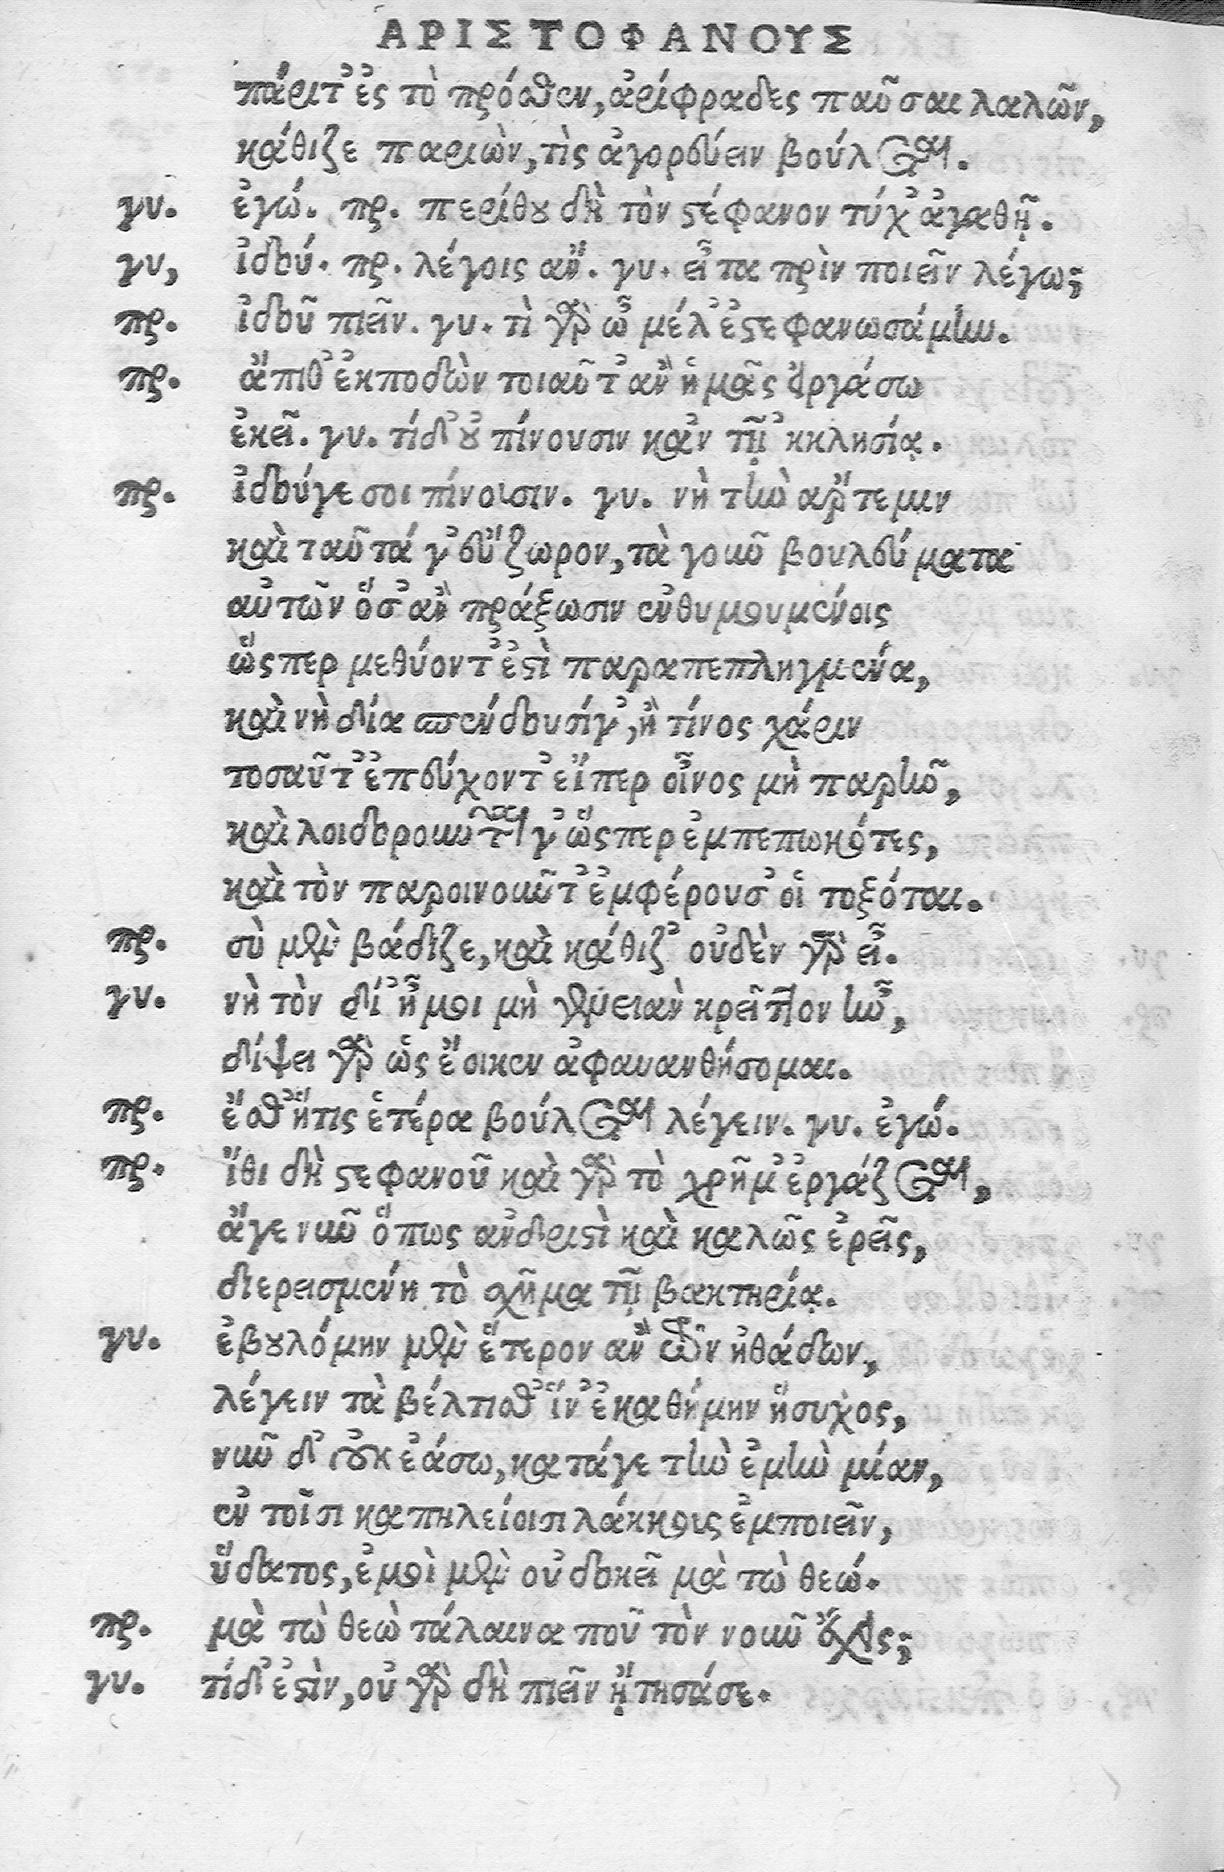 ΑΡΙΣΤΟΦΑΝΟΥΣ
πάριτ' ἐς τὸ πρόσθεν, ἀρίφραδες παῦσαι λαλῶν,
κάθιζε παριὼν, τὶς ἀγορεύειν βούλεται.
γυ. ἐγώ. πρ. περίθου δὴ τὸν στέφανον τύχ' ἀγαθῇ.
γυ, ἰδού. πρ. λέγοις ἄν. γυ. εἶτα πρὶν ποιεῖν λέγω;
πρ. ἰδοῦ πιεῖν. γυ. τὶ γὰρ ὦ μέλ' ἐστεφανωσάμην.
πρ. ἄπιθ' ἐκποδὼν τοιαῦτ' ἂν ἡμᾶς εἰργάσω
ἐκεῖ. γυ. τί δ' οὐ πίνουσιν κἀν τῇ 'κκλησίᾳ.
πρ. ἰδούγε σοι πίνοισιν. γυ. νὴ τὴν ἄρτεμιν
καὶ ταῦτά γ' εὔζωρον, τὰ γοῦν βουλεύματα
αὐτῶν ὅσ' ἂν πράξωσιν ἐνθυμουμένοις
ὥσπερ μεθύοντ' ἐστὶ παραπεπληγμένα,
καὶ νὴ δία σπένδουσίγ', ἢ τίνος χάριν
τοσαῦτ' ἐπεύχοντ' εἴπερ οἶνος μὴ παρῆν,
καὶ λοιδοροῦνταί γ' ὥσπερ ἐμπεπωκότες,
καὶ τὸν παροινοῦντ' ἐμφέρουσ' οἱ τοξόται.
πρ. σὺ μὲν βάδιζε, καὶ κάθιζ' οὐδὲν γὰρ εἶ.
γυ. νὴ τὸν δί' ἦ μοι μὴ γενειᾶν κρεῖττον ἦν,
δίψει γὰρ ὡς ἔοικεν ἀφαυανθήσομαι.
πρ. ἔσθ' ἥτις ἑτέρα βούλεται λέγειν. γυ. ἐγώ.
πρ. ἴθι δὴ στεφανοῦ καὶ γὰρ τὸ χρῆμ' ἐργάζεται,
ἄγε νῦν ὅπως ἀνδριστὶ καὶ καλῶς ἐρεῖς,
διερεισμένη τὸ σχῆμα τῇ βακτηρίᾳ.
γυ. ἐβουλόμην μὲν ἕτερον ἂν τῶν ἠθάδων,
λέγειν τὰ βέλτισθ' ἵν' ἐκαθήμην ἥσυχος,
νῦν δ' οὐκ ἐάσω, κατάγε τὴν ἐμὴν μίαν,
ἐν τοῖσι καπηλείοισι λάκκους ἐμποιεῖν,
ὕδατος, ἐμοὶ μὲν οὐ δοκεῖ μὰ τὼ θεώ.
πρ. μὰ τὼ θεὼ τάλαινα ποῦ τὸν νοῦν ἔχεις;
γυ. τί δ' ἐστὶν, οὐ γὰρ δὴ πιεῖν ᾔτησάσε.